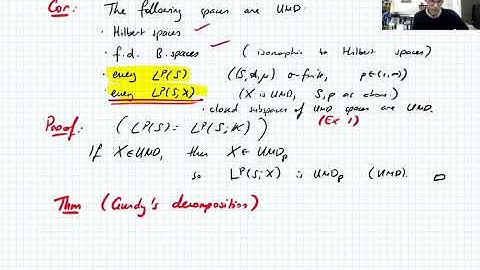 Cor: The following spaces are UMD:
· Hilbert spaces ✓
· f.d. B.spaces ✓ (isomorphic to Hilbert spaces)
· every L^p(S) (S,𝒜,μ) σ-finite, p∈(1,∞)
· every L^p(S;X) (X is UMD, S,p as above.)
· closed subspaces of UMD spaces are UMD.
(Ex 1)
Proof: (L^p(S) = L^p(S;K))
If X∈UMD, then X∈UMD_p
so L^p(S;X) is UMD_p (UMD). □
Thm (Gundy's decomposition)